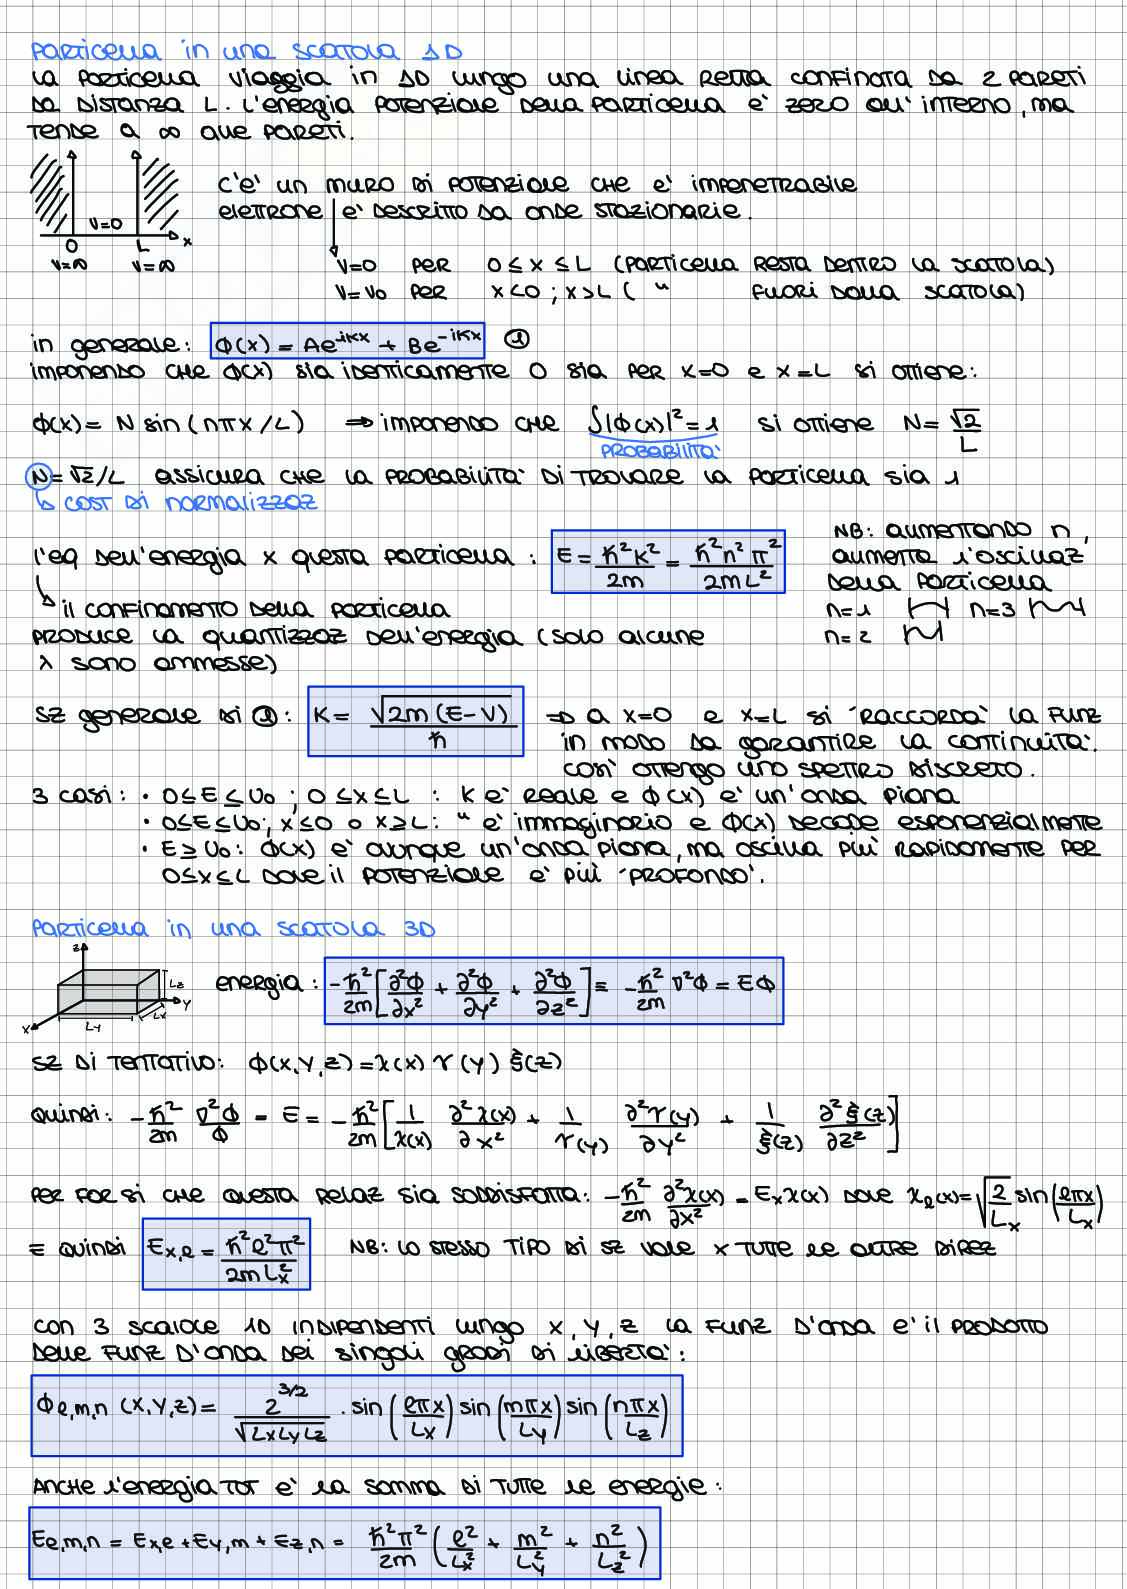 PARTICELLA in una SCATOLA 1D
LA PARTICELLA VIAGGIA in 1D LUNGO UNA LINEA RETTA CONFINATA DA 2 PARETI
DA DISTANZA L. L'energia POTENZIALE DELLA PARTICELLA e' ZERO ALL'INTERNO, MA
TENDE A ∞ ALLE PARETI.
V=0
0 L x
V=∞ V=∞
C'E' UN MURO DI POTENZIALE CHE e' IMPENETRABILE
ELETTRONE e' DESCRITTO DA ONDE STAZIONARIE.
V=0 PER 0≤x≤L (PARTICELLA RESTA DENTRO LA SCATOLA)
V=V₀ PER x<0; x>L ( " FUORI DALLA SCATOLA)
in generale: ϕ(x) = Ae^-iKx + Be^-iKx ①
IMPONENDO CHE ϕ(x) SIA IDENTICAMENTE 0 SIA PER x=0 e x=L SI OTTIENE:
ϕ(x)= N sin(nπx/L) ⇒ IMPONENDO CHE ∫|ϕ(x)|²=1 SI OTTIENE N= √2/L
PROBABILITA'
N=√2/L ASSICURA CHE LA PROBABILITA' DI TROVARE LA PARTICELLA SIA 1
↳ COST DI NORMALIZZAZ
L'EQ DELL'ENERGIA x QUESTA PARTICELLA: E = ℏ²K²/2m = ℏ²n²π²/2mL²
NB: AUMENTANDO n,
AUMENTA L'OSCILLAZ
DELLA PARTICELLA
n=1 n=3
n=2
↳ IL CONFINAMENTO DELLA PARTICELLA
PRODUCE LA QUANTIZZAZ DELL'ENERGIA (SOLO ALCUNE
λ SONO AMMESSE)
SZ generale DI ①: K = √2m(E-V)/ℏ ⇒ A x=0 e x=L SI "RACCORDA" LA FUNZ
IN MODO DA GARANTIRE LA CONTINUITA'.
COSI' OTTENGO UNO SPETTRO DISCRETO.
3 CASI: • 0≤E≤U₀; 0≤x≤L : K e' REALE e ϕ(x) e' UN'ONDA PIANA
• 0≤E≤U₀; x≤0 o x≥L: " e' IMMAGINARIO e ϕ(x) DECADE ESPONENZIALMENTE
• E≥U₀: ϕ(x) e' COMUNQUE UN'ONDA PIANA, MA OSCILLA PIU' RAPIDAMENTE PER
0≤x≤L DOVE IL POTENZIALE e' PIU' "PROFONDO".
PARTICELLA in una SCATOLA 3D
z Lz y Lx Ly x
energia: -ℏ²/2m [∂²Φ/∂x² + ∂²Φ/∂y² + ∂²Φ/∂z²] ≡ -ℏ²/2m ∇²ϕ = EΦ
SZ DI TENTATIVO: ϕ(x,y,z) = χ(x) γ(y) ξ(z)
QUINDI: -ℏ²/2m ∇²ϕ/ϕ = E = -ℏ²/2m [1/χ(x) ∂²χ(x)/∂x² + 1/γ(y) ∂²γ(y)/∂y² + 1/ξ(z) ∂²ξ(z)/∂z²]
PER FAR SI CHE QUESTA RELAZ SIA SODDISFATTA: -ℏ²/2m ∂²χ(x)/∂x² = Eₓχ(x) DOVE χ_ℓ(x)=√(2/Lx) sin(ℓπx/Lx)
E QUINDI E_x,ℓ = ℏ²ℓ²π²/2mLx² NB: LO STESSO TIPO DI SZ VALE x TUTTE LE ALTRE DIREZ
CON 3 SCATOLE 1D INDIPENDENTI LUNGO x, y, z LA FUNZ D'ONDA e' IL PRODOTTO
DELLE FUNZ D'ONDA DEI SINGOLI GRADI DI LIBERTA':
ϕ_ℓ,m,n (x,y,z) = 2^3/2/√LxLyLz · sin(ℓπx/Lx) sin(mπx/Ly) sin(nπx/Lz)
ANCHE L'ENERGIA TOT e' LA SOMMA DI TUTTE LE ENERGIE:
E_ℓ,m,n = E_x,ℓ + E_y,m + E_z,n = ℏ²π²/2m (ℓ²/Lx² + m²/Ly² + n²/Lz²)